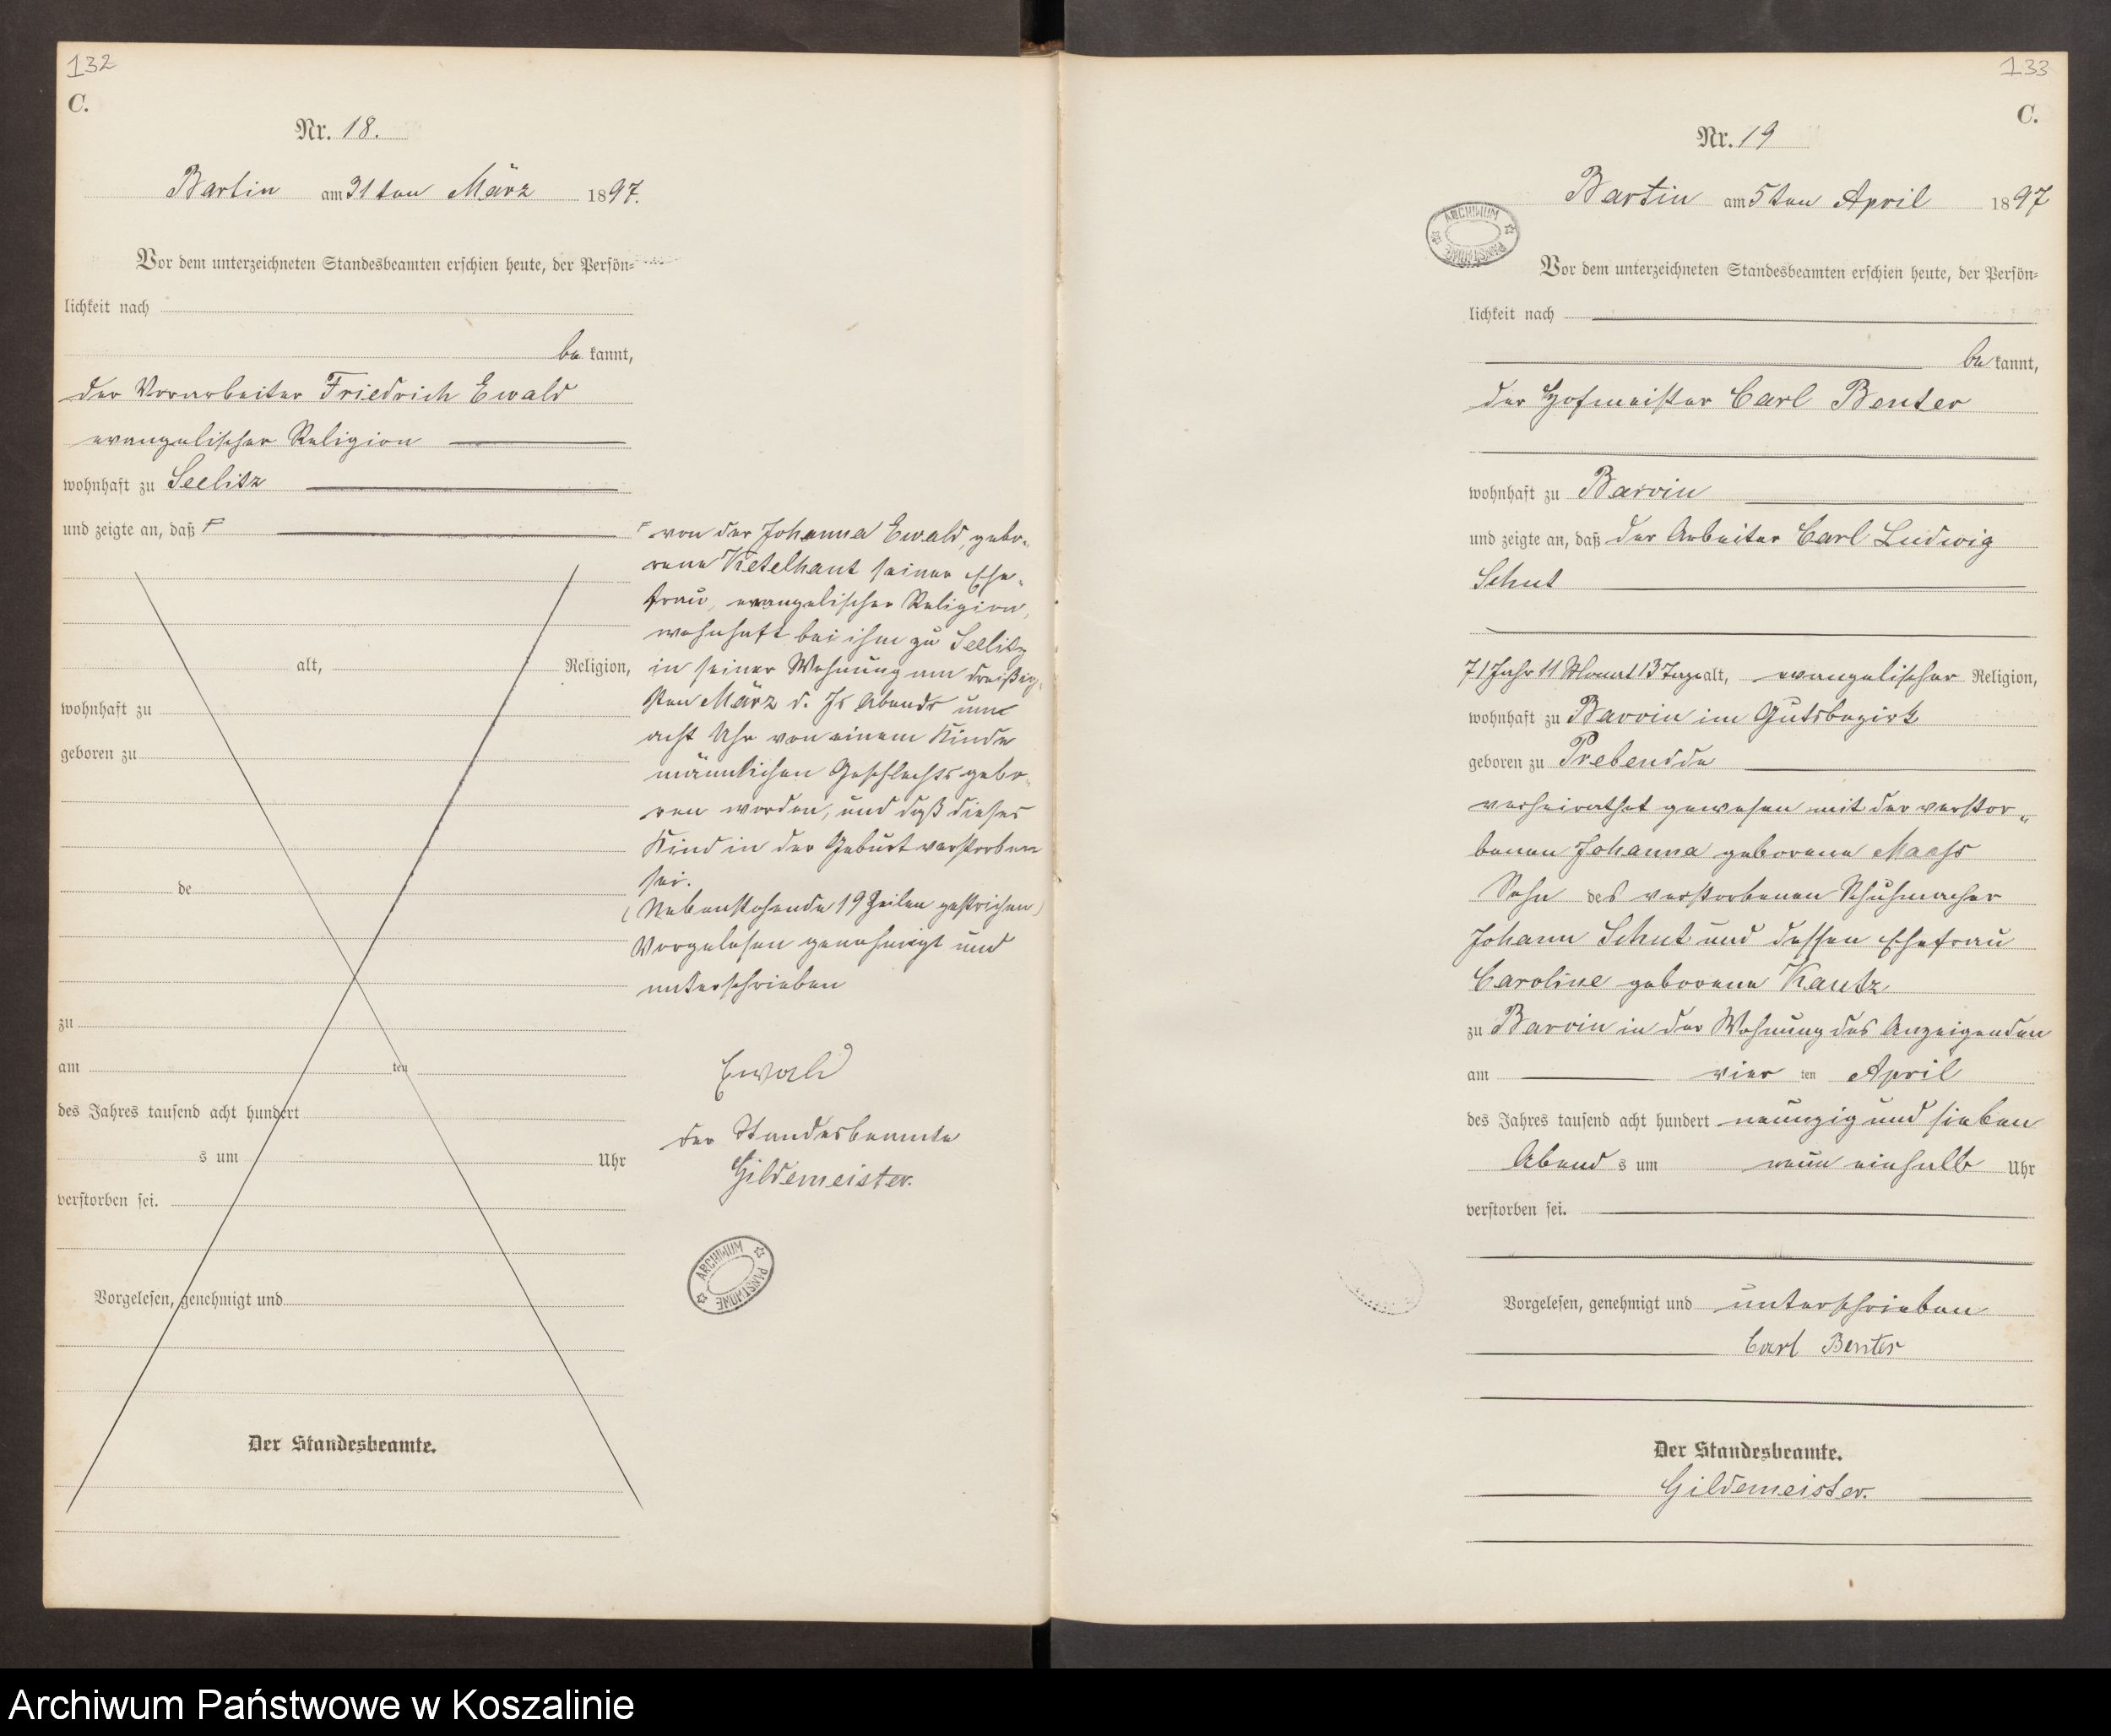 132
C.
Nr. 18.
Bartin am 31ten März 1897.
Vor dem unterzeichneten Standesbeamten erschien heute, der Persön-
lichkeit nach
be kannt,
der Vorarbeiter Friedrich Ewald
evangelischer Religion
wohnhaft zu Seelitz
und zeigte an, daß
alt, Religion,
wohnhaft zu
geboren zu
de
zu
am ten
des Jahres tausend acht hundert
s um Uhr
verstorben sei.
Vorgelesen, genehmigt und
Der Standesbeamte.
von der Johanna Ewald, gebo-
rene Ketelhaut seiner Ehe-
frau, evangelischer Religion,
wohnhaft bei ihm zu Seelitz
in seiner Wohnung am dreißig-
sten März d. Js Abends um
acht Uhr von einem Kinde
männlichen Geschlechts gebo-
ren worden, und daß dieses
Kind in der Geburt verstorben
sei.
(Nebenstehende 19 Zeilen gestrichen)
Vorgelesen genehmigt und
unterschrieben
Ewald
der Standesbeamte
Gildemeister.
ARCHIWUM PAŃSTWOWE
133
C.
Nr. 19
Bartin am 5ten April 1897
ARCHIWUM PAŃSTWOWE
Vor dem unterzeichneten Standesbeamten erschien heute, der Persön-
lichkeit nach
be kannt,
der Hofmeister Carl Benter
wohnhaft zu Barvin
und zeigte an, daß der Arbeiter Carl Ludwig
Schut
71 Jahr 11 Monat 13 Tage alt, evangelischer Religion,
wohnhaft zu Barvin im Gutsbezirk
geboren zu Prebendde
verheirathet gewesen mit der verstor-
benen Johanna geborene Maass
Sohn des verstorbenen Schuhmacher
Johann Schut und dessen Ehefrau
Caroline geborene Kautz
zu Barvin in der Wohnung des Anzeigenden
am vier ten April
des Jahres tausend acht hundert neunzig und sieben
Abend s um neun einhalb Uhr
verstorben sei.
Vorgelesen, genehmigt und unterschrieben
Carl Benter
Der Standesbeamte.
Gildemeister.
Archiwum Państwowe w Koszalinie